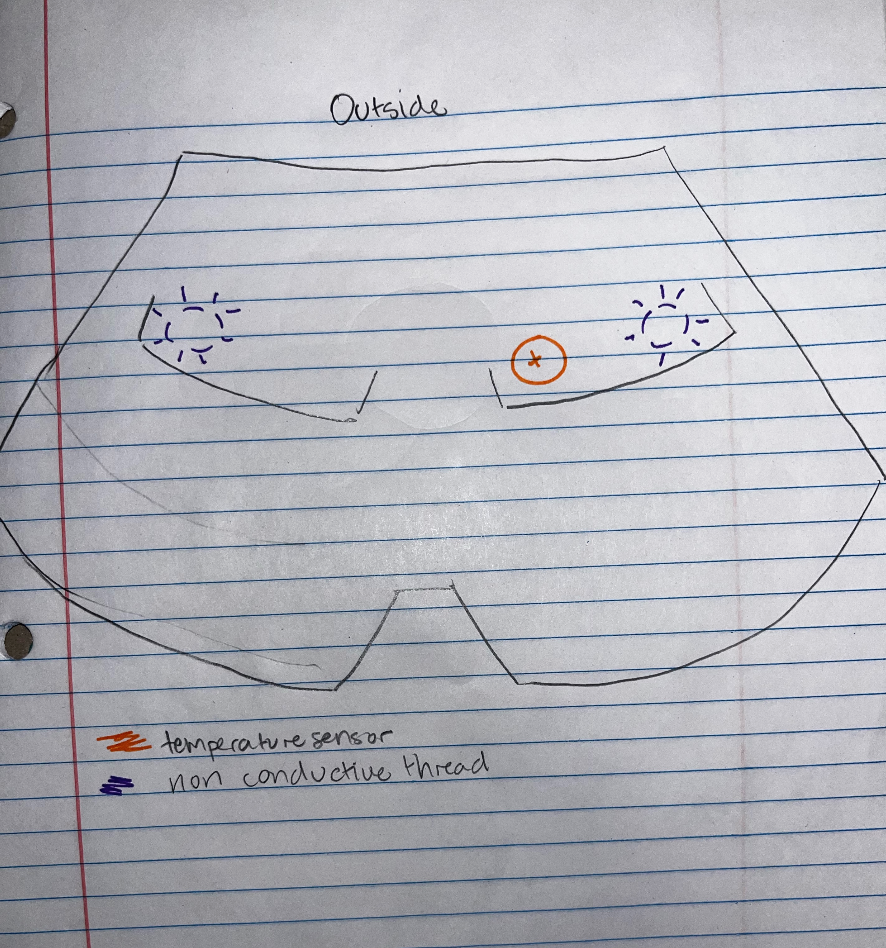 Outside
temperature sensor
non conductive thread